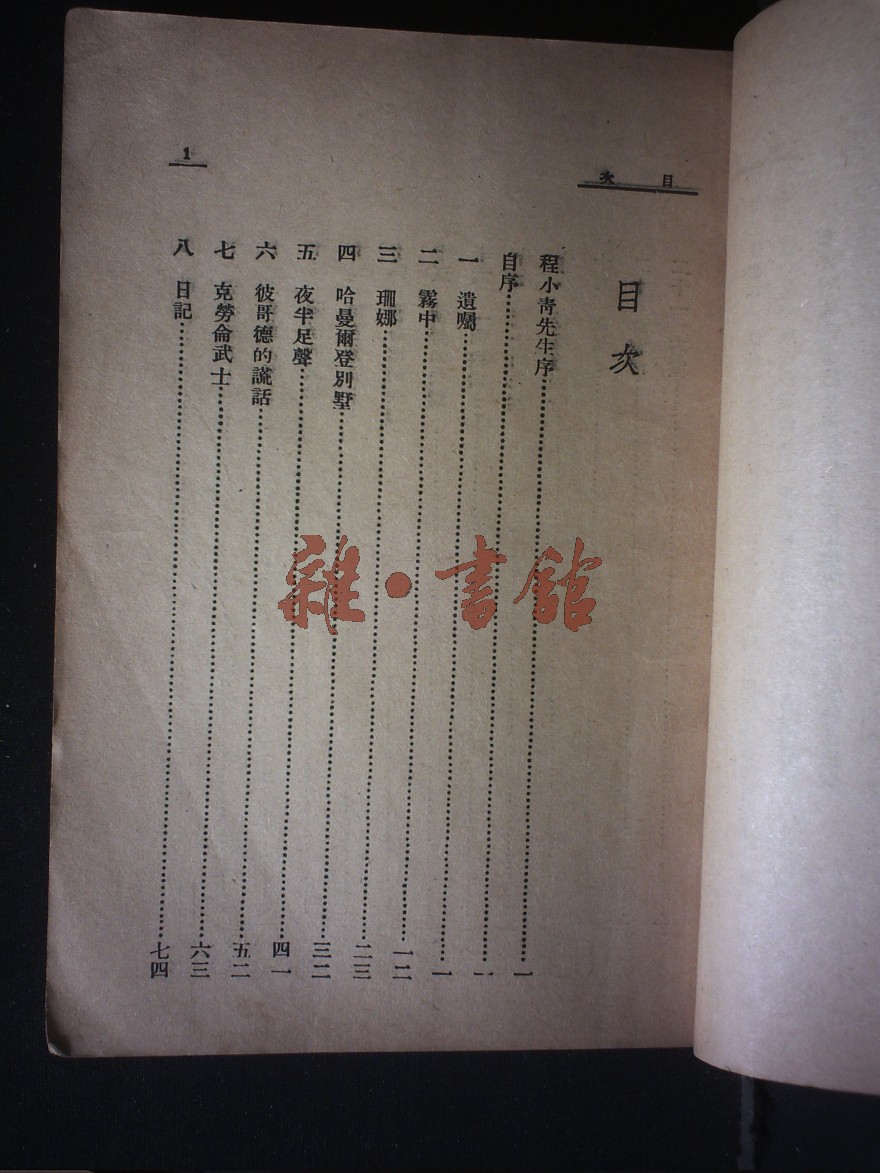 目次
1
目次
程小青先生序……一
自序……一
一 遺囑……一
二 霧中……一二
三 珊娜……二三
四 哈曼爾登別墅……三二
五 夜半足聲……四一
六 彼哥德的謊話……五二
七 克勞侖武士……六三
八 日記……七四
雜·書館